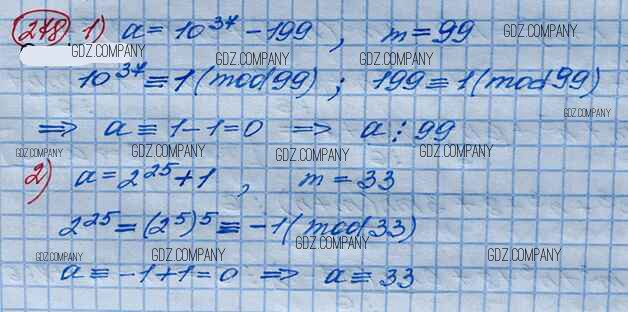 278) 1) a = 10^37 - 199 , m = 99
10^37 ≡ 1 (mod 99) ; 199 ≡ 1 (mod 99)
⇒ a ≡ 1 - 1 = 0 ⇒ a ⋮ 99
2) a = 2^25 + 1 , m = 33
2^25 = (2^5)^5 ≡ -1 (mod 33)
a ≡ -1 + 1 = 0 ⇒ a ≡ 33
GDZ.COMPANY
GDZ.COMPANY
GDZ.COMPANY
GDZ.COMPANY
GDZ.COMPANY
GDZ.COMPANY
GDZ.COMPANY
GDZ.COMPANY
GDZ.COMPANY
GDZ.COMPANY
GDZ.COMPANY
GDZ.COMPANY
GDZ.COMPANY
GDZ.COMPANY